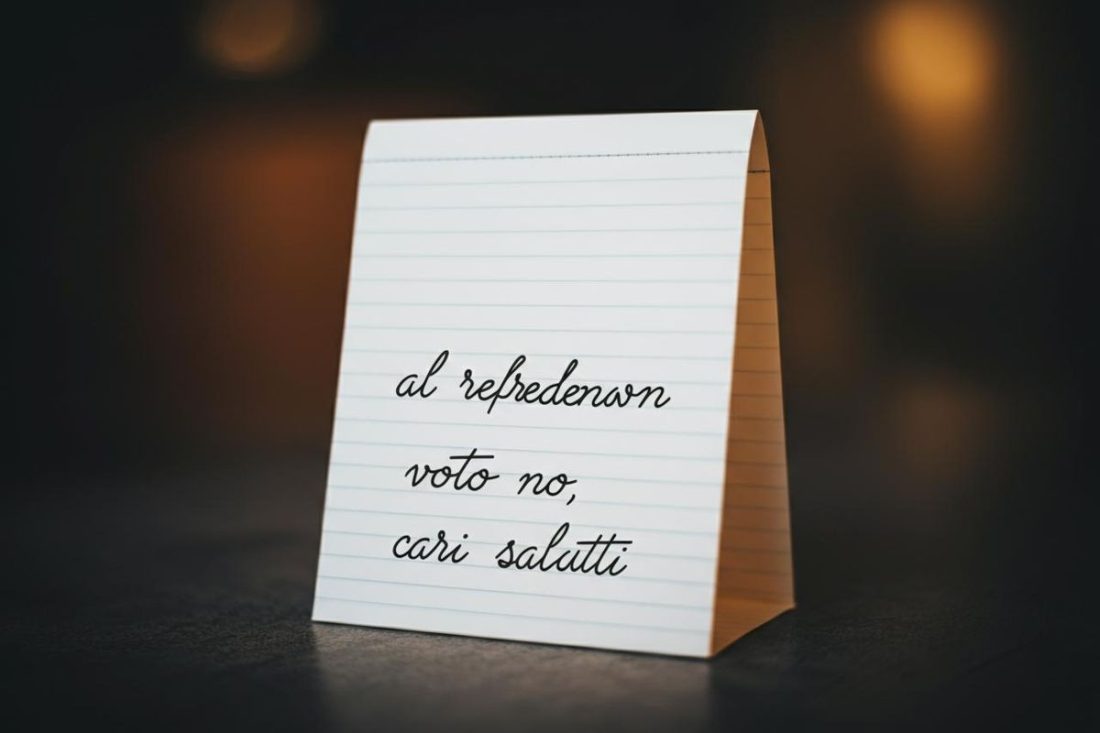 al refredenwn
voto no,
cari salutti